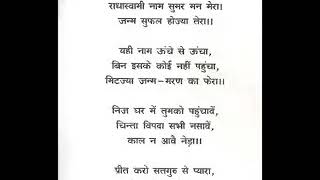 राधास्वामी नाम सुमर मन मेरा।
जन्म सुफल होज्या तेरा।।
यही नाम ऊंचे से ऊंचा,
बिन इसके कोई नहीं पहुंचा,
मिटज्या जन्म-मरण का फेरा।।
निज घर में तुमको पहुंचावें,
चिन्ता विपदा सभी नसावें,
काल न आवै नेड़ा।।
प्रीत करो सतगुरु से प्यारा,